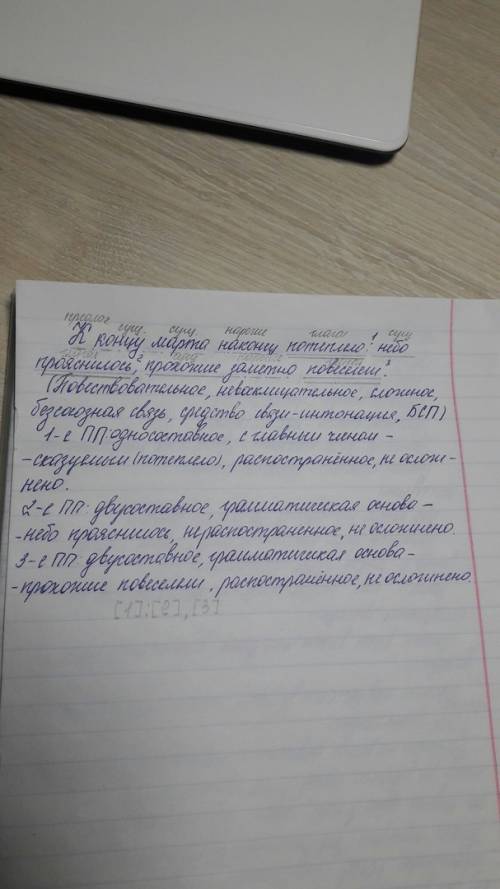 предлог сущ. сущ. наречие глагол сущ
К концу марта наконец потеплело: небо
прояснилось, прохожие заметно повеселели.
(Повествовательное, невосклицательное, сложное,
безсоюзная связь, средство связи-интонация, БСП)
1-е ПП: односоставное, с главным членом -
-сказуемым (потеплело), распостранённое, не ослож-
нено.
2-е ПП: двусоставное, грамматическая основа -
-небо прояснилось, нераспостраненное, не осложнено.
3-е ПП: двусоставное, грамматическая основа-
-прохожие повеселели, распостранённое, не осложнено.
[1]:[2],[3]